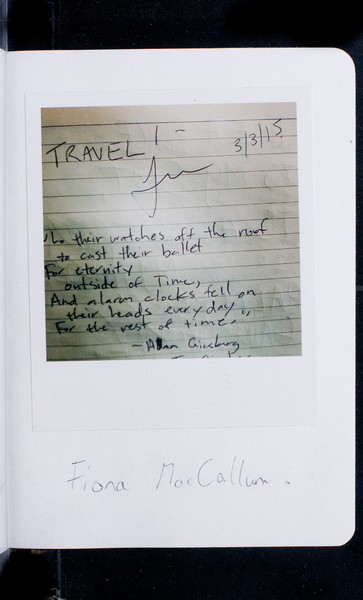 TRAVEL! -
3/3/15
their watches off the roof
to cast their ballot
For eternity
outside of Time,
And alarm clocks fell on
their heads every day
For the rest of time."
- Allan Ginsburg
Fiona MacCallum.